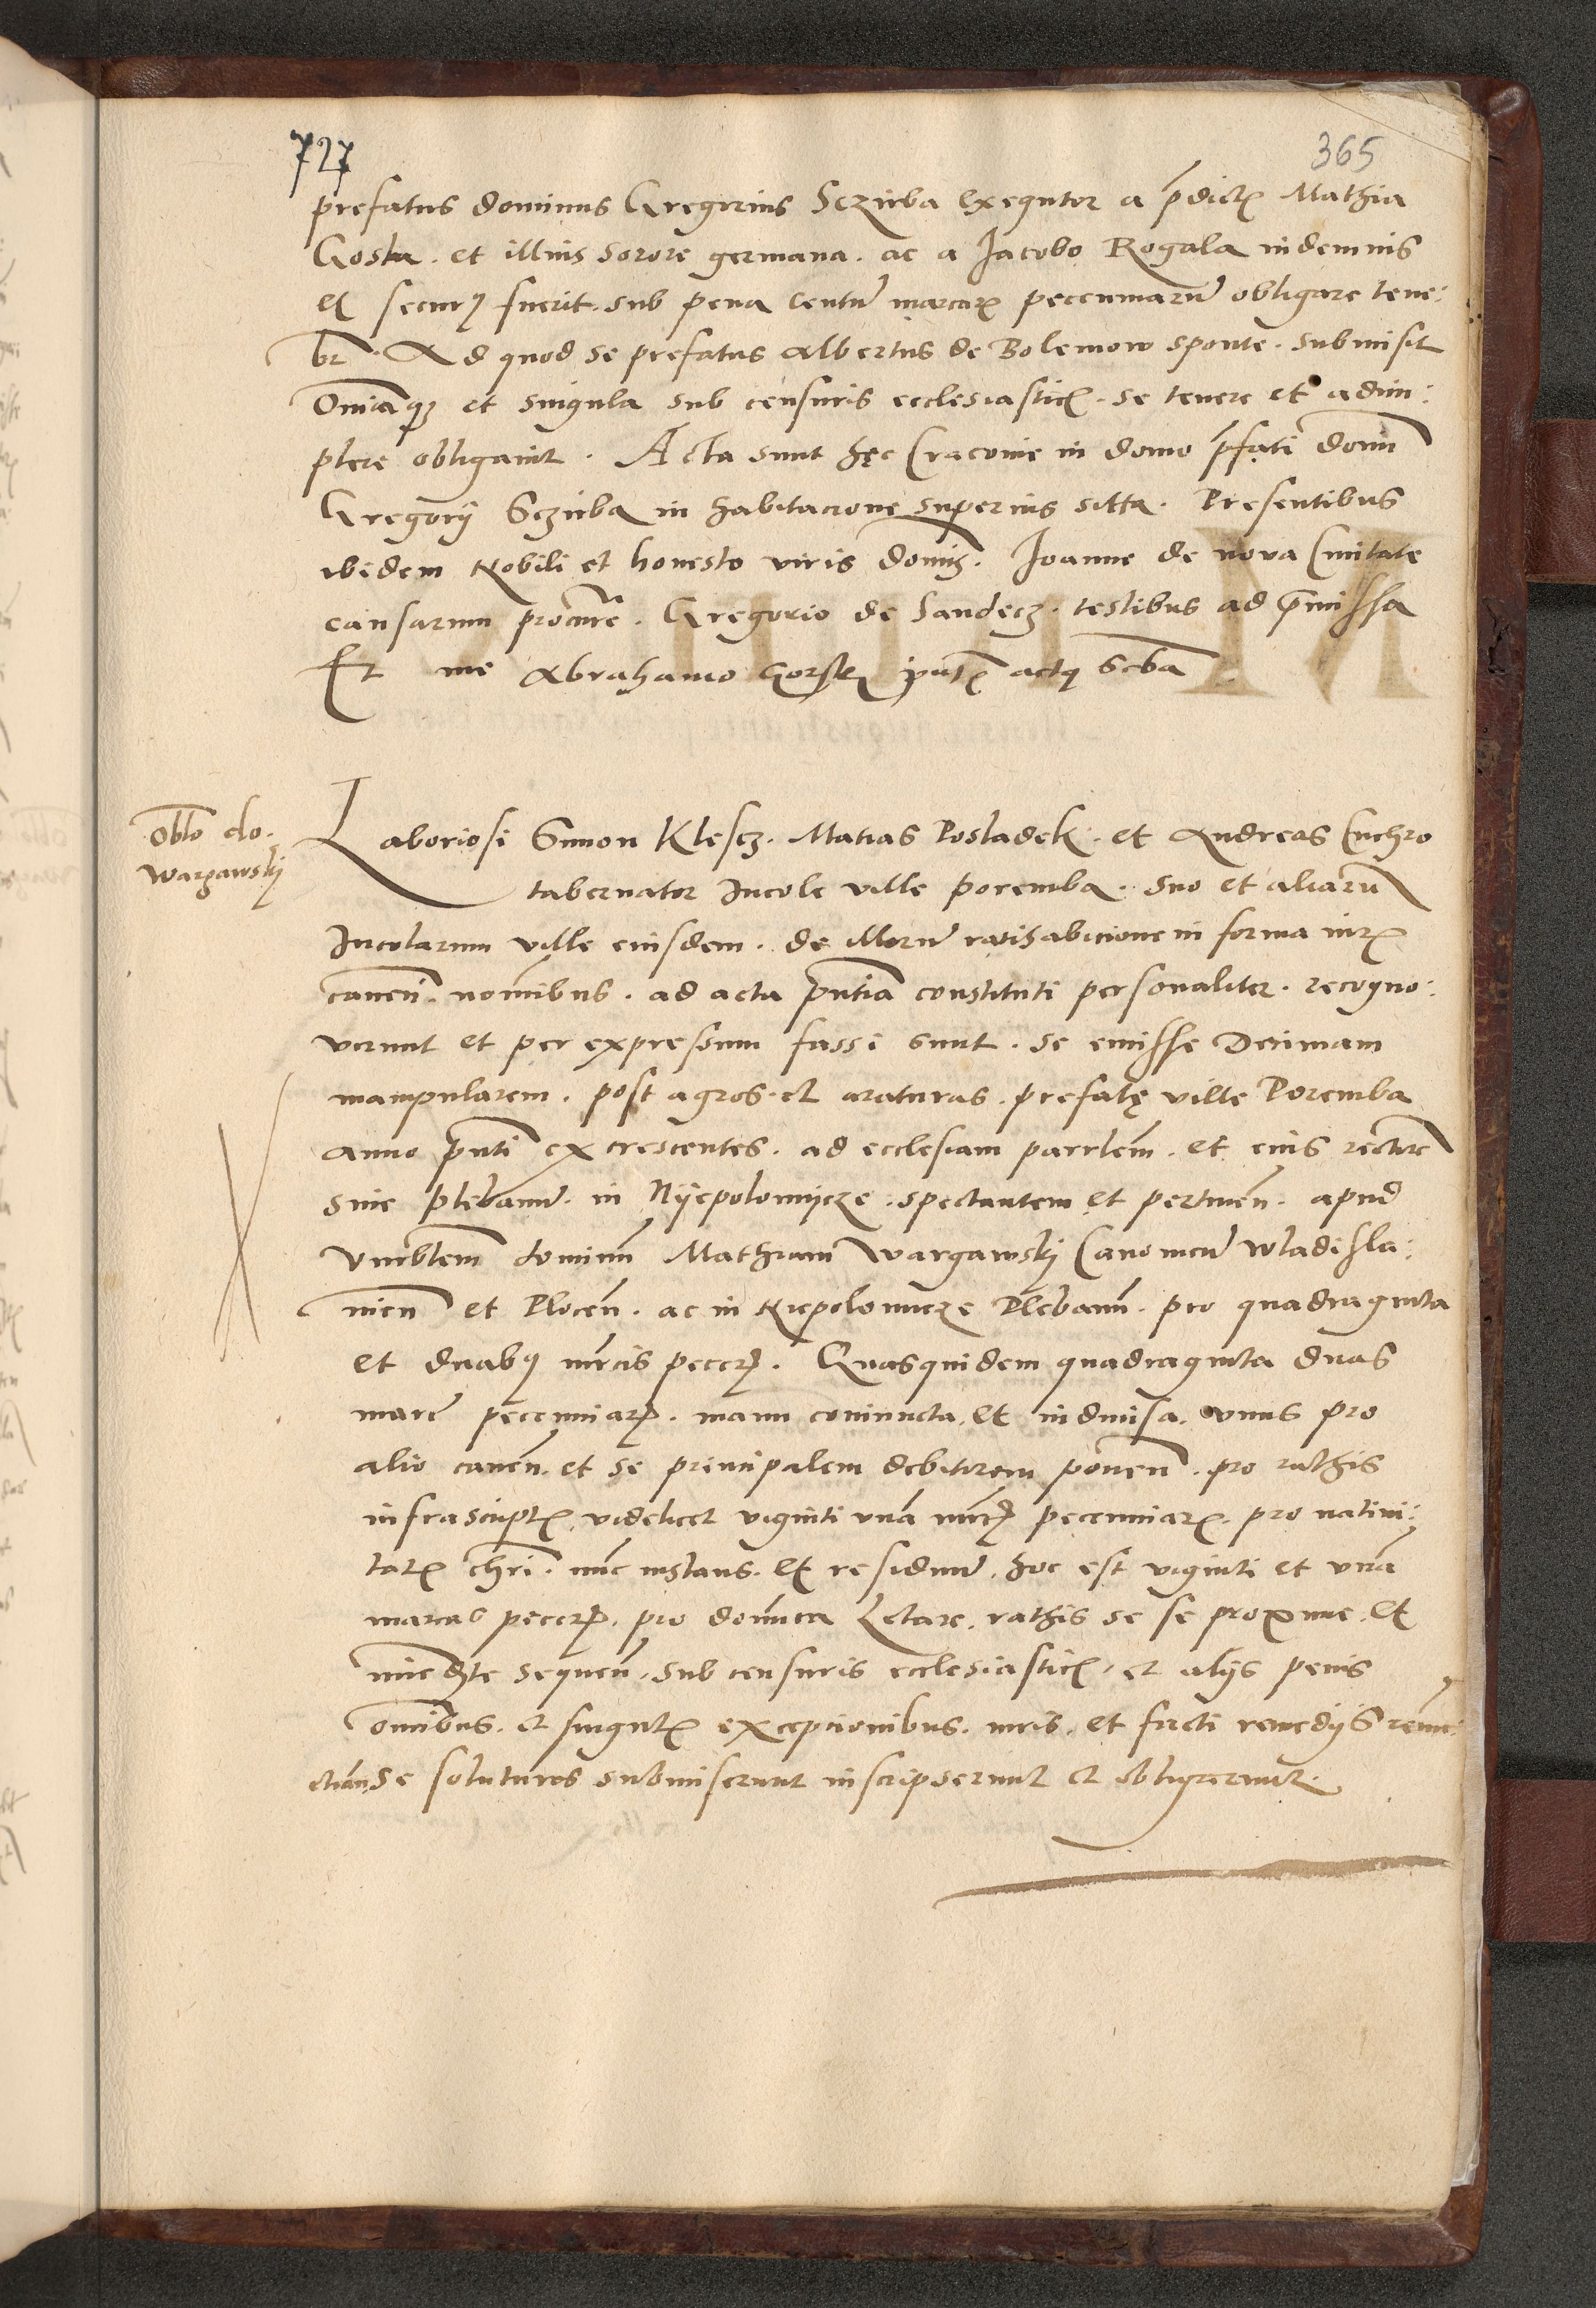 727
365
prefatus dominus Gregorius Sczirba exequtor a p̄dict̄ Mathia
Goska . et illius sorore germana . ac a Jacobo Rogala indemnis
et securꝰ fuerit . sub pena centū marcarꝝ peccuniarū obligare tene:
br̄ . Ad quod se prefatus Albertus de Bolemow sponte . submisit
Om̄iaqꝫ et singula sub censuris ecclesiastic̄ . se tenere et adim:
plere obligavit . Acta sunt hęc Cracovie in domo p̄fati dom̄
Gregorij Sczirba in habitacione superius sitta . Presentibus
ibidem Nobili et honesto viris domīs . Joanne de nova Civitate
causarum procur̄e . Gregorio de Sandecz . testibus ad p̄missa
Et me Abrahamo Gorsky pn̄t̄ actꝰ scb̄a
Oblō do.
Wargawskj
Laboriosi Simon Klescz . Matias Posladek . et Andreas Cuchro
tabernator Incole ville Poremba . suo et aliarū
Incolarum ville eiusdem . de illorū ratihabicione in forma iurꝭ
caven̄ . nom̄ibus . ad acta pn̄tia constituti personaliter . recogno:
verunt et per expressum fassi sunt . se emisse Decimam
manipularem . post agros . et araturas . prefatę ville Poremba
anno pn̄ti excrescentes . ad ecclesiam parrlem̄ . et eius rectorē
sive plebanū . in Nyepolomycze . spectantem et pertinen̄ . apud
venērblem̄ dominū Mathiam Wargawskj Canonicū Wladisla:
vien̄ et Plocen̄ . ac in Niepolomicze Plebanū . pro quadraginta
et duabꝰ mrcis peccꝝ . Quasquidem quadraginta duas
marc̄ peccuniarꝝ . manu coniuncta . et indivisa . unus pro
alio caven̄ . et se principalem debitorem ponen̄ . pro rathis
infrascriptꝭ . videlicet viginti unā mrcꝝ peccuniarꝝ . pro nativi:
tatꝭ chrī . nunc instans . et residuū . hoc est viginti et unā
marcas peccꝝ . pro domīca Letare . rathis se se proxime . et
īmedꝫte sequen̄ . sub censuris ecclesiastic̄ . et alijs penis
omībus . et singulꝭ excepcionibus . iuris . et facti remedijs renūc:
ctian̄ . se soluturos submiserunt inscripserunt et obligaverunt .